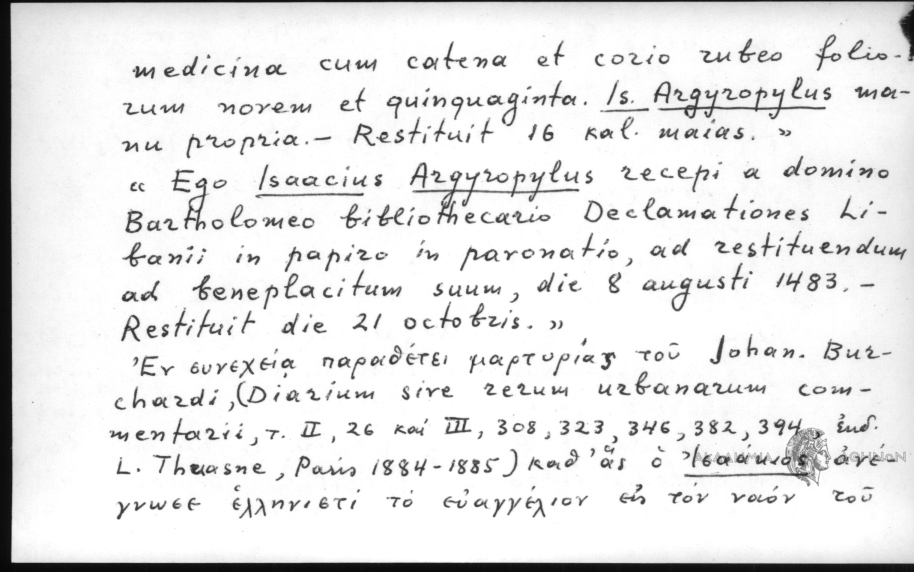 medicina cum catena et corio rubeo folio-
rum novem et quinquaginta. Is. Argyropylus ma-
nu propria. – Restituit 16 kal. maias. »
« Ego Isaacius Argyropylus recepi a domino
Bartholomeo bibliothecario Declamationes Li-
banii in papiro in paronatio, ad restituendum
ad beneplacitum suum, die 8 augusti 1483. –
Restituit die 21 octobris. »
Ἐν συνεχείᾳ παραθέτει μαρτυρίας τοῦ Johan. Bur-
chardi, (Diarium sive rerum urbanarum com-
mentarii, τ. II, 26 καί III, 308, 323, 346, 382, 394, ἐκδ.
L. Thuasne, Paris 1884-1885) καθ' ἅς ὁ Ἰσαάκιος ἀνέ-
γνωσε ἑλληνιστί τό εὐαγγέλιον εἰς τόν ναόν τοῦ
ΑΚΑΔΗΜΙΑ ΑΘΗΝΩΝ